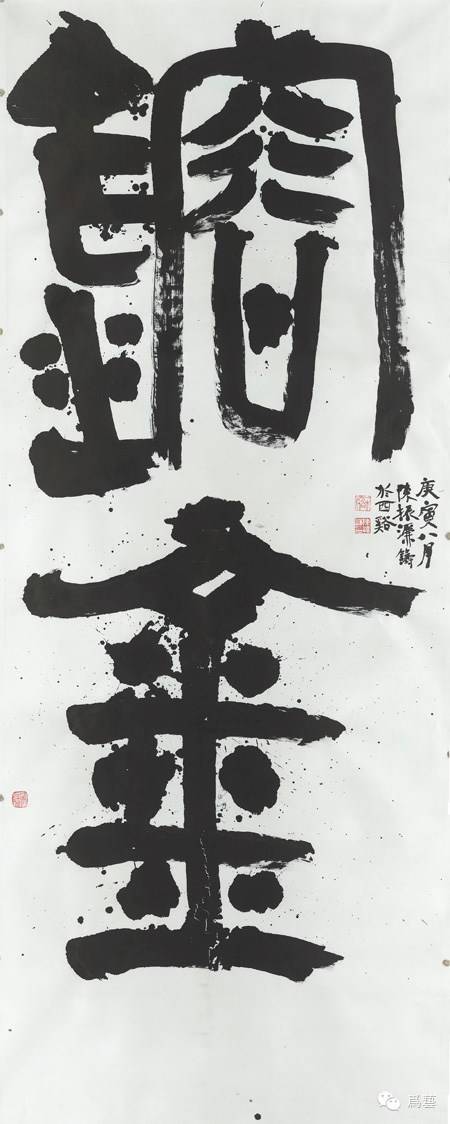 鎔金
庚寅八月
陳振濂鑄
於西谿
爲藝